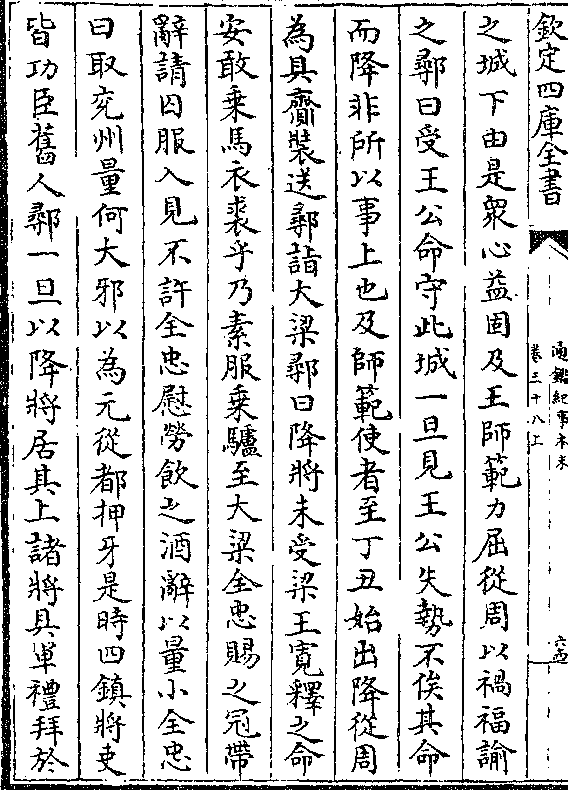 欽定四庫全書
通鑑紀事本末
卷三十八上
之城下由是衆心益固及王師範力屈從周以禍福諭
之鄩曰受王公命守此城一旦見王公失勢不俟其命
而降非所以事上也及師範使者至丁丑始出降從周
為具齎裝送鄩詣大梁鄩曰降將未受梁王寛釋之命
安敢乗馬衣裘乎乃素服乗驢至大梁全忠賜之冠帶
辭請囚服入見不許全忠慰勞飲之酒辭以量小全忠
曰取兖州量何大邪以為元從都押牙是時四鎮將吏
皆功臣舊人鄩一旦以降將居其上諸將具軍禮拜於